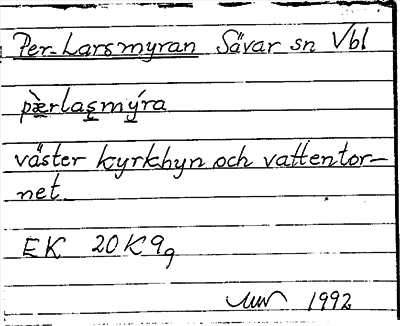 Per-Larsmyran Sävar sn Vbl
pæ̀rlasmýra
väster kyrkbyn och vattentor-
net
EK 20K9g
1992